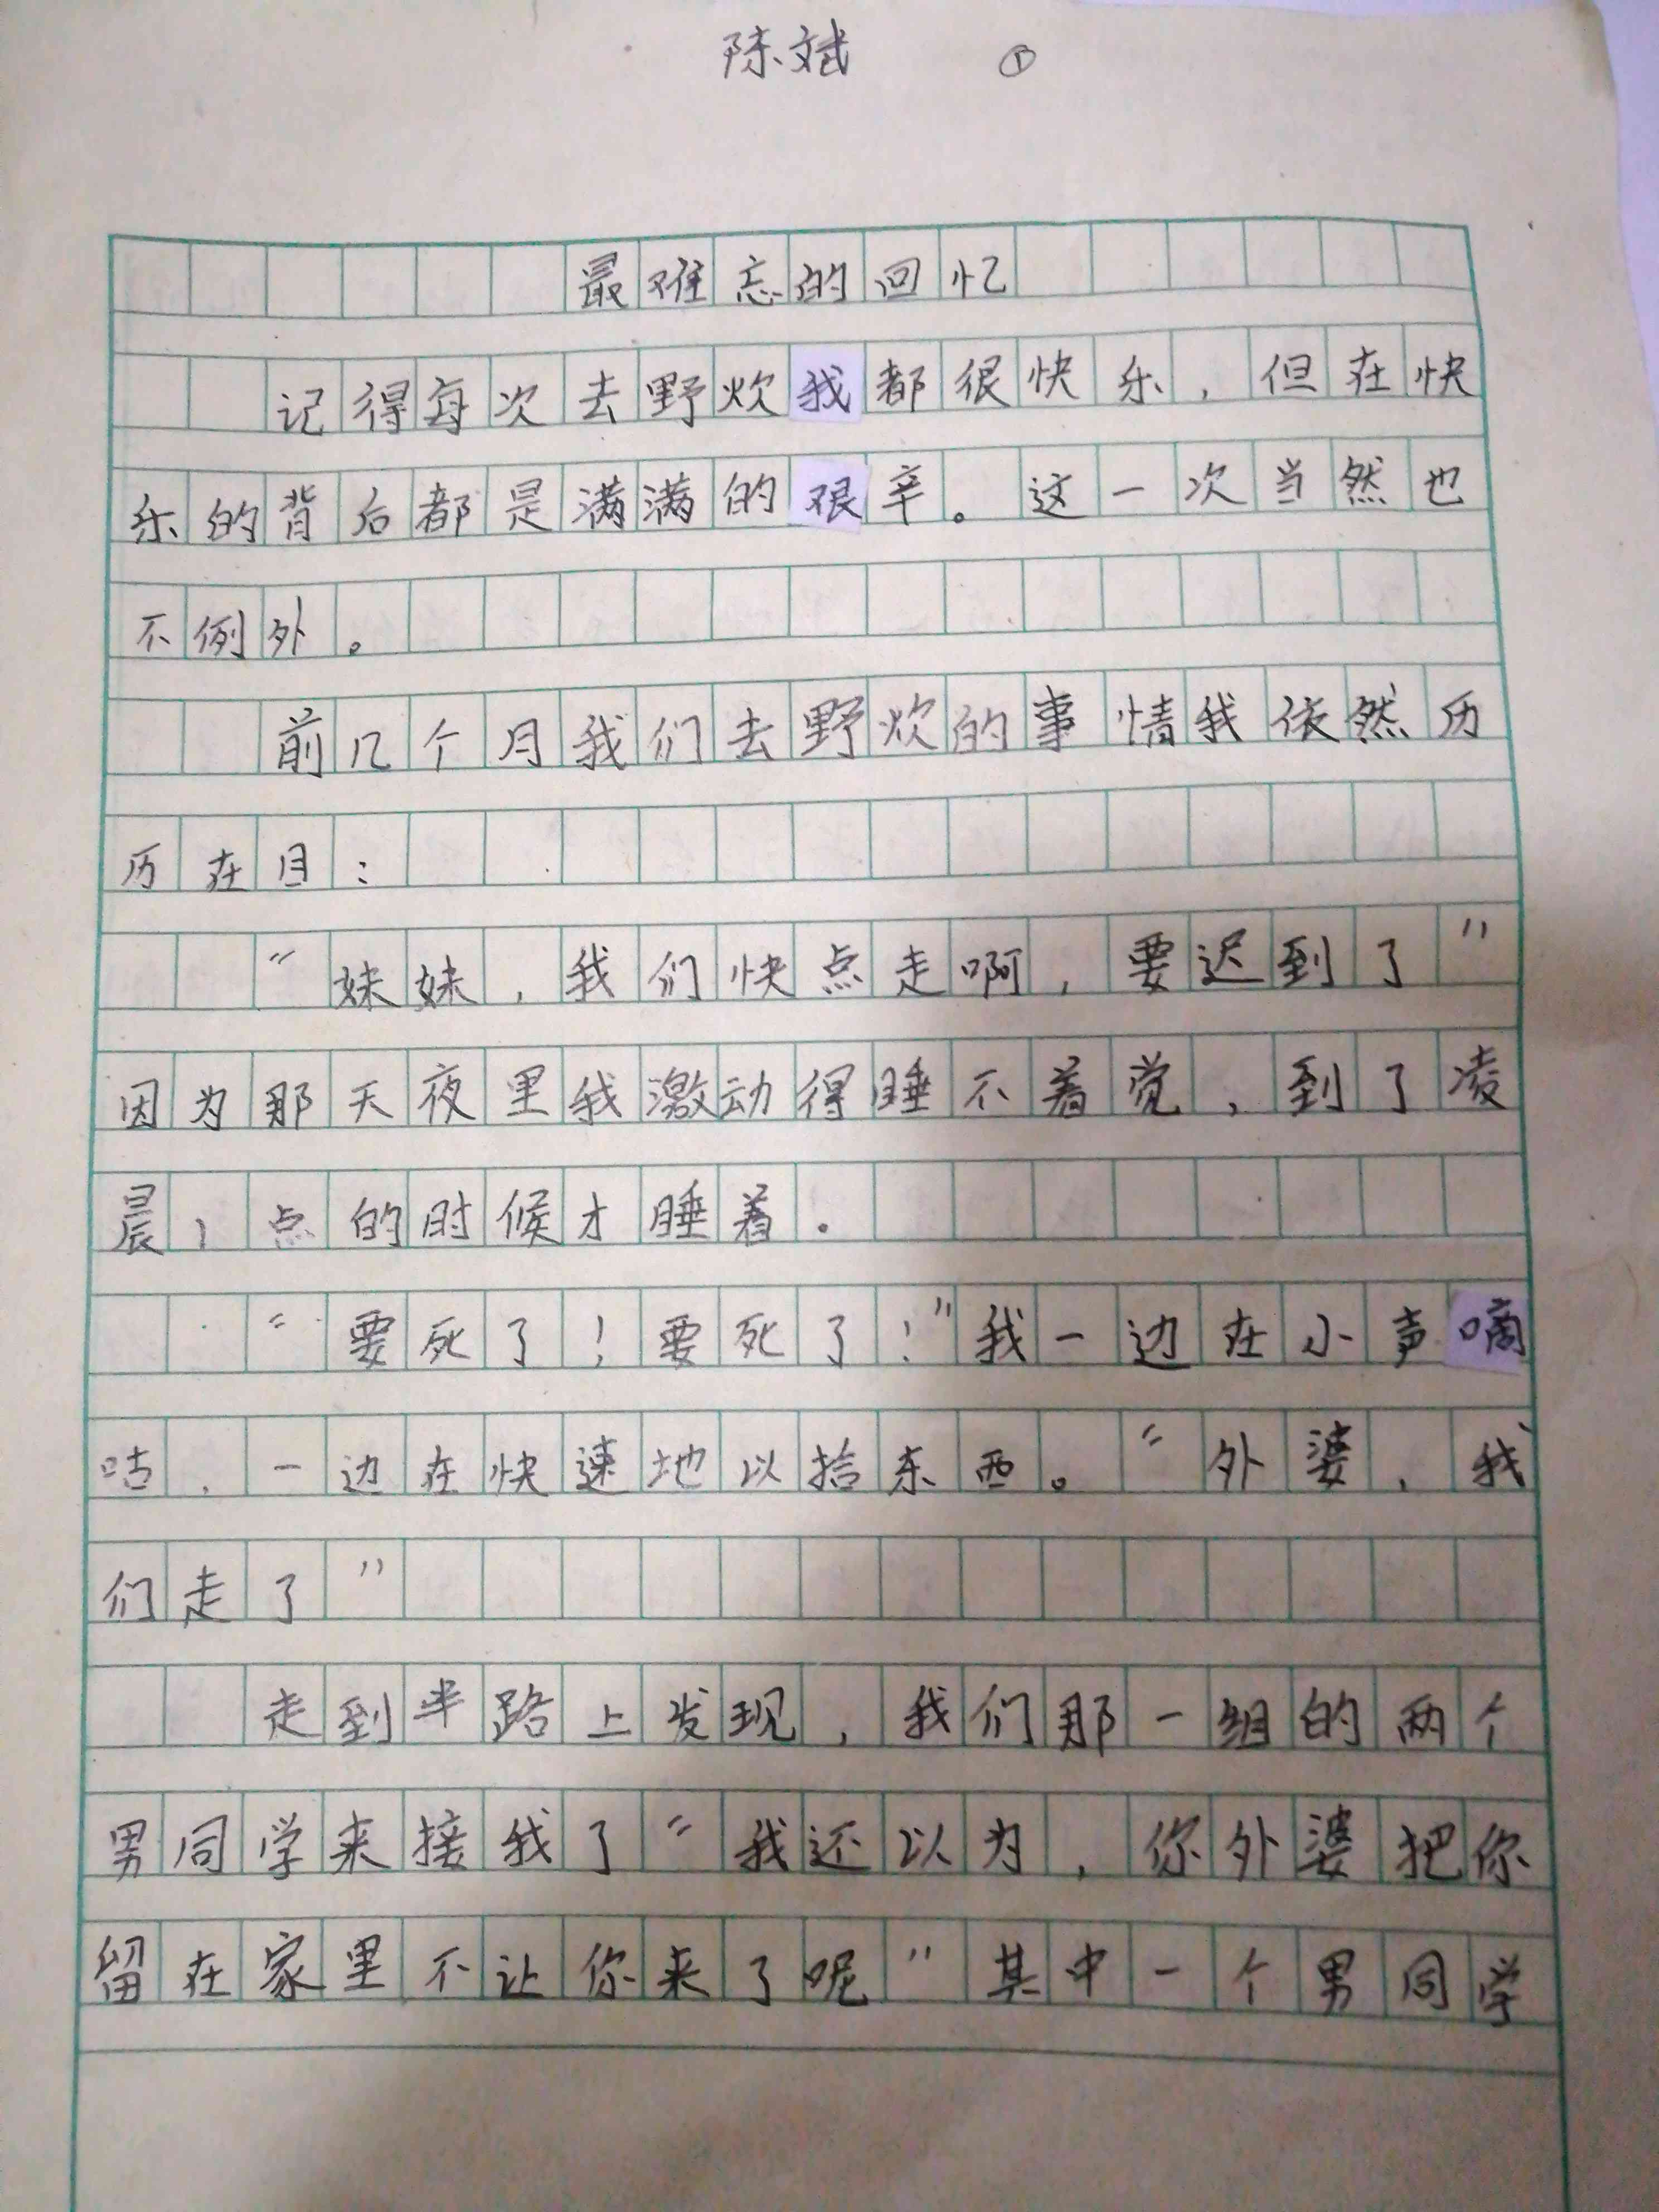 陈斌 ①
最难忘的回忆
记得每次去野炊我都很快乐，但在快
乐的背后都是满满的艰辛。这一次当然也
不例外。
前几个月我们去野炊的事情我依然历
历在目：
“妹妹，我们快点走啊，要迟到了”
因为那天夜里我激动得睡不着觉，到了凌
晨1点的时候才睡着.
“要死了！要死了！”我一边在小声嘀
咕，一边在快速地以拾东西。“外婆，我
们走了”
走到半路上发现，我们那一组的两个
男同学来接我了“我还以为，你外婆把你
留在家里不让你来了呢”其中一个男同学